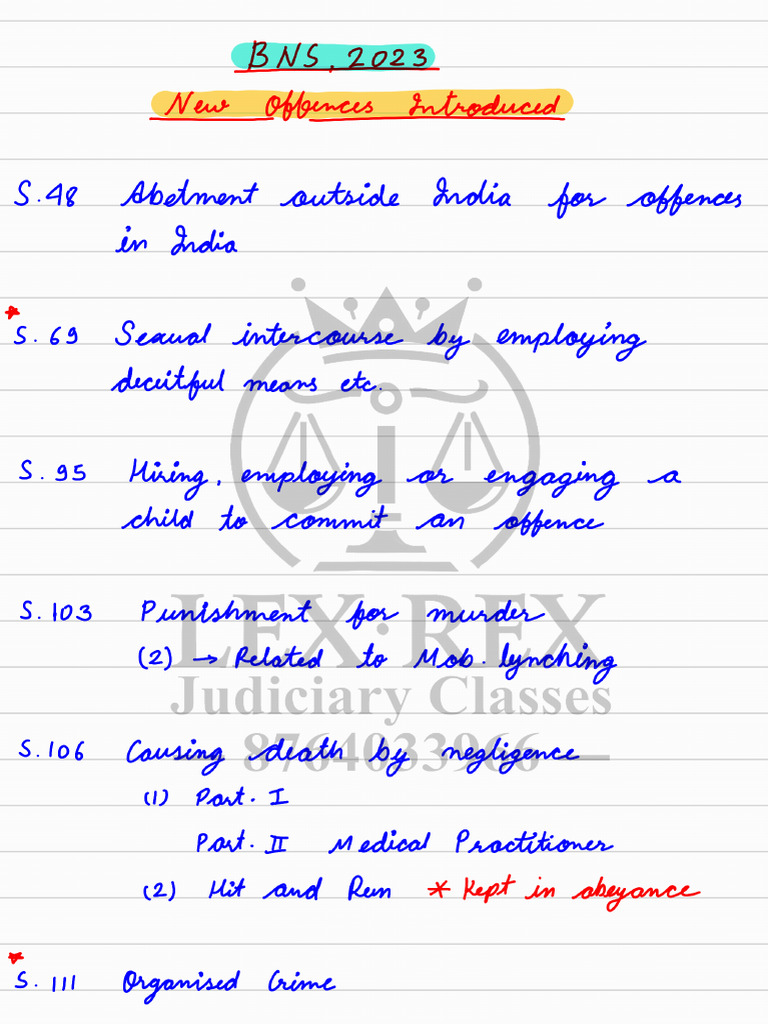 BNS, 2023
New Offences Introduced
S.48 Abetment outside India for offences
in India
S. 69 Sexual intercourse by employing
deceitful means etc.
S. 95 Hiring, employing or engaging a
child to commit an offence
S. 103 Punishment for murder
(2) → Related to Mob. lynching
LEX·REX
Judiciary Classes
S. 106 Causing death by negligence
8764033966
(1) Part. I
Part. II Medical Practitioner
(2) Hit and Run * Kept in abeyance
S. 111 Organised Crime